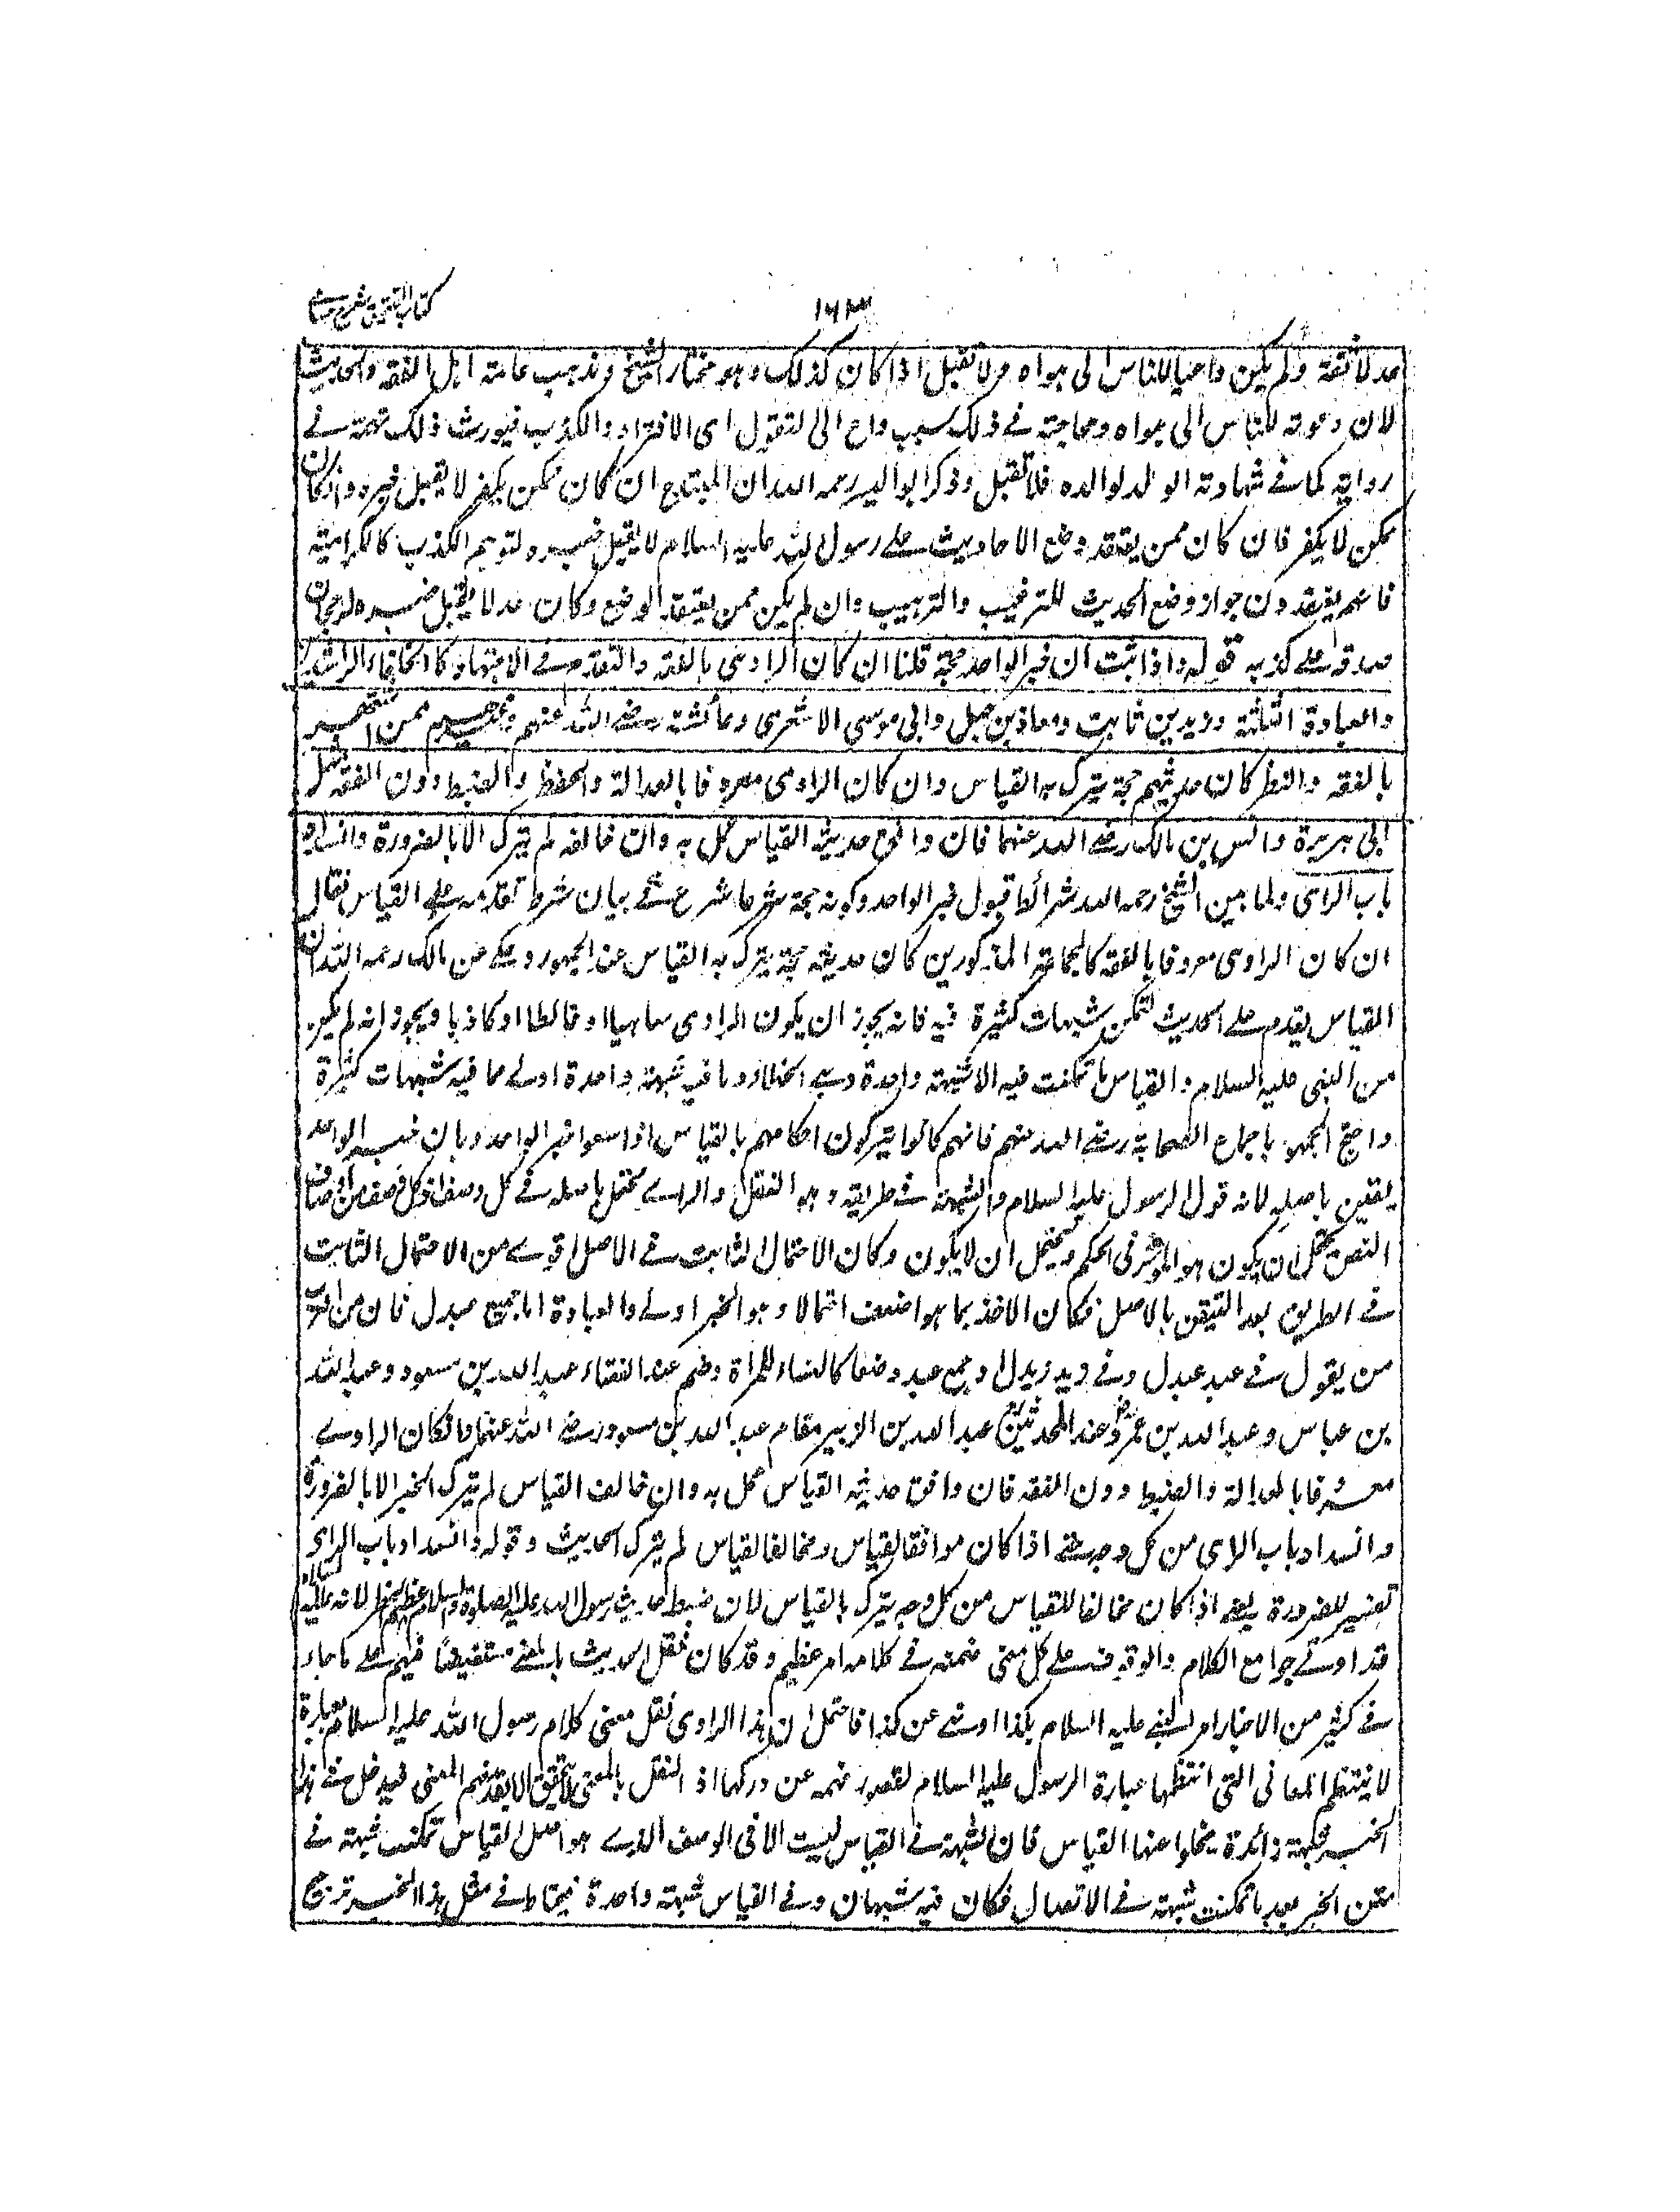 كتاب التحقيق شرح حسامي
١٦٣
عدلا ثقة ولم يكن داعيا للناس الى هواه ولا تقبل اذا كان كذلك وهو مختار الشيخ ومذهب عامة اهل الفقه والحديث
لان دعوته للناس الى هواه ومحاجته في ذلك سبب داع الى التقول اى الافتراء والكذب فيورث ذلك تهمة في
روايته كما في شهادة الوالد لولده فلا تقبل وذكر ابو اليسر رحمه الله ان المبتدع ان كان ممكن يكفر لا يقبل خبره وان كان
ممكن لا يكفر فان كان ممن يعتقد وضع الاحاديث على رسول الله عليه السلام لا يقبل خبره ولتوهم الكذب كالكرامية
فانهم يعتقدون جواز وضع الحديث للترغيب والترهيب وان لم يكن ممن يعتقد الوضع وكان عدلا يقبل خبره لرجحان
صدقه على كذبه قوله واذا ثبت ان خبر الواحد حجة قلنا ان كان الراوى بالفقه والتقدم في الاجتهاد كالخلفاء الراشدين
والعبادلة الثلثة وزيد بن ثابت ومعاذ بن جبل وابى موسى الاشعرى وعائشة رضى الله عنهم وغيرهم ممن اشتهر
بالفقه والنظر كان حديثهم حجة يترك به القياس وان كان الراوى معروفا بالعدالة والحفظ والضبط دون الفقه مثل
ابى هريرة وانس بن مالك رضى الله عنهما فان وافق حديثه القياس عمل به وان خالفه لم يترك الا بالضرورة وانسداد
باب الراى ولما بين الشيخ رحمه الله شرائط قبول خبر الواحد وكونه حجة شرعا شرع في بيان شرط تقدمه على القياس فقال
ان كان الراوى معروفا بالفقه كالجماعة المذكورين كان حديثه حجة يترك به القياس عند الجمهور وحكى عن مالك رحمه الله ان
القياس يقدم على الحديث لتمكن شبهات كثيرة فيه فانه يجوز ان يكون الراوى ساهيا او غالطا او كاذبا ويجوز انه لم يكن
من النبى عليه السلام والقياس ما تمكنت فيه الا شبهة واحدة وهى الخطاء وما فيه شبهة واحدة اولى مما فيه شبهات كثيرة
واحتج الجمهور باجماع الصحابة رضى الله عنهم فانهم كانوا يتركون احكامهم بالقياس اذا سمعوا خبر الواحد وبان خبر الواحد
يقين باصله لانه قول الرسول عليه السلام والشبهة في طريقه وهو النقل والراى محتمل باصله في كل وصف فكل وصف من اوصاف
النص يحتمل ان يكون هو المؤثر فى الحكم ويحتمل ان لا يكون وكان الاحتمال الثابت في الاصل اقوى من الاحتمال الثابت
في الطريق بعد التيقن بالاصل فكان الاخذ بما هو اضعف احتمالا وهو الخبر اولى والعبادلة اما جمع عبدل فان من العرب
من يقول في عبد عبدل وفي زيد زيدل او جمع عبد وضعا كالنساء للمراة وهم عند الفقهاء عبد الله بن مسعود وعبد الله
بن عباس وعبد الله بن عمر وعند المحدثين عبد الله بن الزبير مقام عبد الله بن مسعود رضى الله عنهم اما ان كان الراوى
معروفا بالعدالة والضبط دون الفقه فان وافق حديثه القياس عمل به وان خالف القياس لم يترك الخبر الا بالضرورة
وانسداد باب الراى من كل وجه حتى اذا كان موافقا لقياس ومخالفا لقياس لم يترك الحديث وقوله وانسداد باب الراى
تفسير للضرورة يعنى اذا كان مخالفا للقياس من كل وجه يترك بالقياس لان ضبط حديث رسول الله عليه الصلوة والسلام عظيم الخطر لانه عليه السلام
قد اوتى جوامع الكلام والوقوف على كل معنى ضمنه في كلامه امر عظيم وقد كان نقل الحديث بالمعنى مستفيضا فيهم على ما جاء
في كثير من الاخبار امر النبى عليه السلام بكذا او نهى عن كذا فاحتمل ان هذا الراوى نقل معنى كلام رسول الله عليه السلام بعبارة
لا ينتظم المعانى التى انتظمها عبارة الرسول عليه السلام لقصور فهمه عن دركها اذ النقل بالمعنى لا يتحقق الا بقدر فهم المعنى فيدخل في هذا
الخبر شبهة زائدة يخلوا عنها القياس فان الشبهة في القياس ليست الا فى الوصف الذى هو اصل القياس تمكنت شبهة في
متن الخبر بعد ما تمكنت شبهة في الاتصال فكان فيه شبهتان وفي القياس شبهة واحدة فيحتاط في مثل هذا الخبر ترجيح